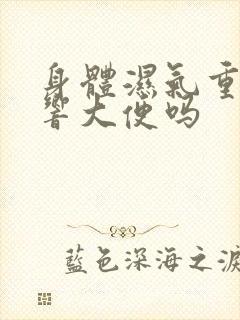 身體濕氣重
響大便吗
藍色深海之淚